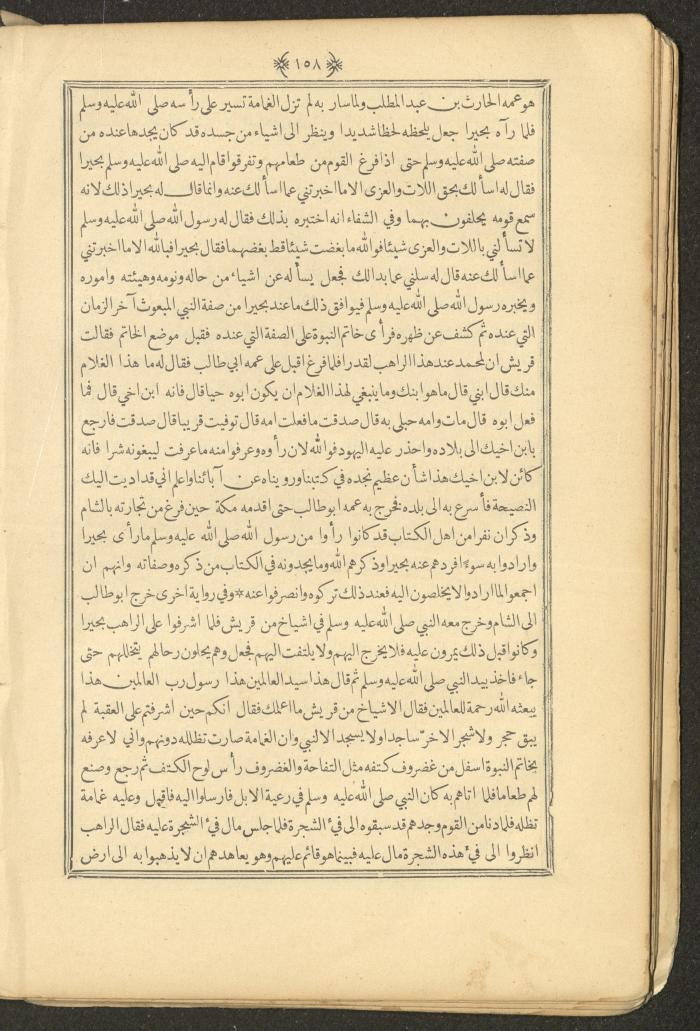 ١٥٨
هو عمه الحارث بن عبد المطلب ولما سار به لم تزل الغمامة تسير على رأسه صلى الله عليه وسلم
فلما رآه بحيرا جعل يلحظه لحظا شديدا وينظر الى اشياء من جسده قد كان يجدها عنده من
صفته صلى الله عليه وسلم حتى اذا فرغ القوم من طعامهم وتفرقوا قام اليه صلى الله عليه وسلم بحيرا
فقال له اسألك بحق اللات والعزى الا ما اخبرتني عما اسألك عنه وانما قال له بحيرا ذلك لانه
سمع قومه يحلفون بهما وفي الشفاء انه اختبره بذلك فقال له رسول الله صلى الله عليه وسلم
لا تسألني باللات والعزى شيئا فوالله ما بغضت شيئا قط بغضهما فقال بحيرا فبالله الا ما اخبرتني
عما اسألك عنه قال له سلني عما بدالك فجعل يسأله عن اشياء من حاله ونومه وهيئته واموره
ويخبره رسول الله صلى الله عليه وسلم فيوافق ذلك ما عند بحيرا من صفة النبي المبعوث آخر الزمان
التي عنده ثم كشف عن ظهره فرأى خاتم النبوة على الصفة التي عنده فقبل موضع الخاتم فقالت
قريش ان لمحمد عند هذا الراهب لقدرا فلما فرغ اقبل على عمه ابي طالب فقال له ما هذا الغلام
منك قال ابني قال ما هو ابنك وما ينبغي لهذا الغلام ان يكون ابوه حيا قال فانه ابن اخي قال فما
فعل ابوه قال مات وامه حبلى به قال صدقت ما فعلت امه قال توفيت قريبا قال صدقت فارجع
بابن اخيك الى بلاده واحذر عليه اليهود فوالله لان رأوه وعرفوا منه ما عرفت ليبغونه شرا فانه
كائن لابن اخيك هذا شأن عظيم نجده في كتبنا ورويناه عن آبائنا واعلم اني قد اديت اليك
النصيحة فأسرع به الى بلده فخرج به عمه ابو طالب حتى اقدمه مكة حين فرغ من تجارته بالشام
وذكر ان نفرا من اهل الكتاب قد كانوا رأوا من رسول الله صلى الله عليه وسلم ما رأى بحيرا
وارادوا به سوءا فردهم عنه بحيرا وذكرهم الله وما يجدونه في الكتاب من ذكره وصفاته وانهم ان
اجمعوا لما ارادوا لا يخلصون اليه فعند ذلك تركوه وانصرفوا عنه * وفي رواية اخرى خرج ابو طالب
الى الشام وخرج معه النبي صلى الله عليه وسلم في اشياخ من قريش فلما اشرفوا على الراهب بحيرا
وكانوا قبل ذلك يمرون عليه فلا يخرج اليهم ولا يلتفت اليهم فجعل وهم يحلون رحالهم يتخللهم حتى
جاء فاخذ بيد النبي صلى الله عليه وسلم ثم قال هذا سيد العالمين هذا رسول رب العالمين هذا
يبعثه الله رحمة للعالمين فقال الاشياخ من قريش ما اعلمك فقال انكم حين اشرفتم على العقبة لم
يبق حجر ولا شجر الا خر ساجدا ولا يسجد الا لنبي وان الغمامة صارت تظلله دونهم واني لاعرفه
بخاتم النبوة اسفل من غضروف كتفه مثل التفاحة والغضروف رأس لوح الكتف ثم رجع وصنع
لهم طعاما فلما اتاهم به كان النبي صلى الله عليه وسلم في رعية الابل فارسلوا اليه فاقبل وعليه غمامة
تظله فلما دنا من القوم وجدهم قد سبقوه الى فيء الشجرة فلما جلس مال فيء الشجرة عليه فقال الراهب
انظروا الى فيء هذه الشجرة مال عليه فبينما هو قائم عليهم وهو يعاهدهم ان لا يذهبوا به الى ارض